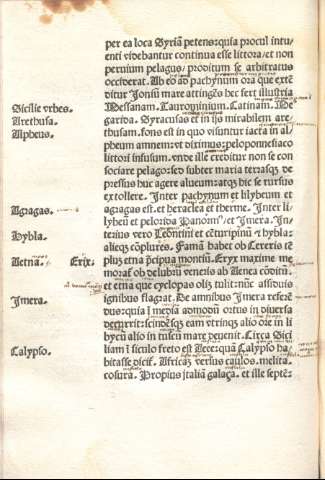 per ea loca Syriā petens: quia procul intu/
enti videbantur continua esse littora: et non
peruium pelagus: proditum se arbitratus
occiderat. Ab eo ad pachynum ora que extē
ditur Joniū mare attingēs hec fert illustria
Sicilie vrbes. Messanam. Taurominium. Catinam. Me
Arethusa. garida. Syracusas et in ijs mirabilem are/
Alpheus. thusam. fons est in quo visuntur iacta in al/
pheum amnem: vt diximus: peloponnesiaco
littori infusum. vnde ille creditur non se con
sociare pelago: sed subter maria terrasq; de
pressus huc agere alueum: atq; hic se rursus
extollere. Inter pachynum et lilybeum et
Agragas. agragas est. et heraclea et therme. Inter li/
lybeū et pelorida Panorm⁹ et Jmera. In/
Hybla. terius vero Leōtini et cēturipinū et hybla:
alieq; cōplures. Famā habet ob Cereris tē
Aetna. Erix. plū etna p̄cipua montiū. Eryx maxime me
moraſ ob delubrū veneris ab Aenea cōditū.
et etna que cyclopas oliz tulit: nūc assiduis
Jmera. ignibus flagrat. De amnibus Jmera referē
dus: quia ī media admodū ortus in diuersa
decurrit: scindēsq; eam vtrinq; alio ore in li
bycū alio in tuscū mare deuenit. Circa Sici
Calypso. liam ī siculo freto est Aeee: quā Calypso ha/
bitasse diciť. Africaz versus caulos. melita.
cosura. Propius italiā galata. et ille septē: